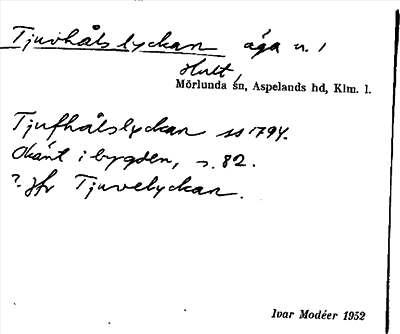 Tjuvhålslyckan äga n. 1
Hult,
Mörlunda sn, Aspelands hd, Klm. l.
Tjufhålslyckan ss 1794.
Okänt i bygden, s. 82.
? Jfr Tjuvelyckan.
Ivar Modéer 1952